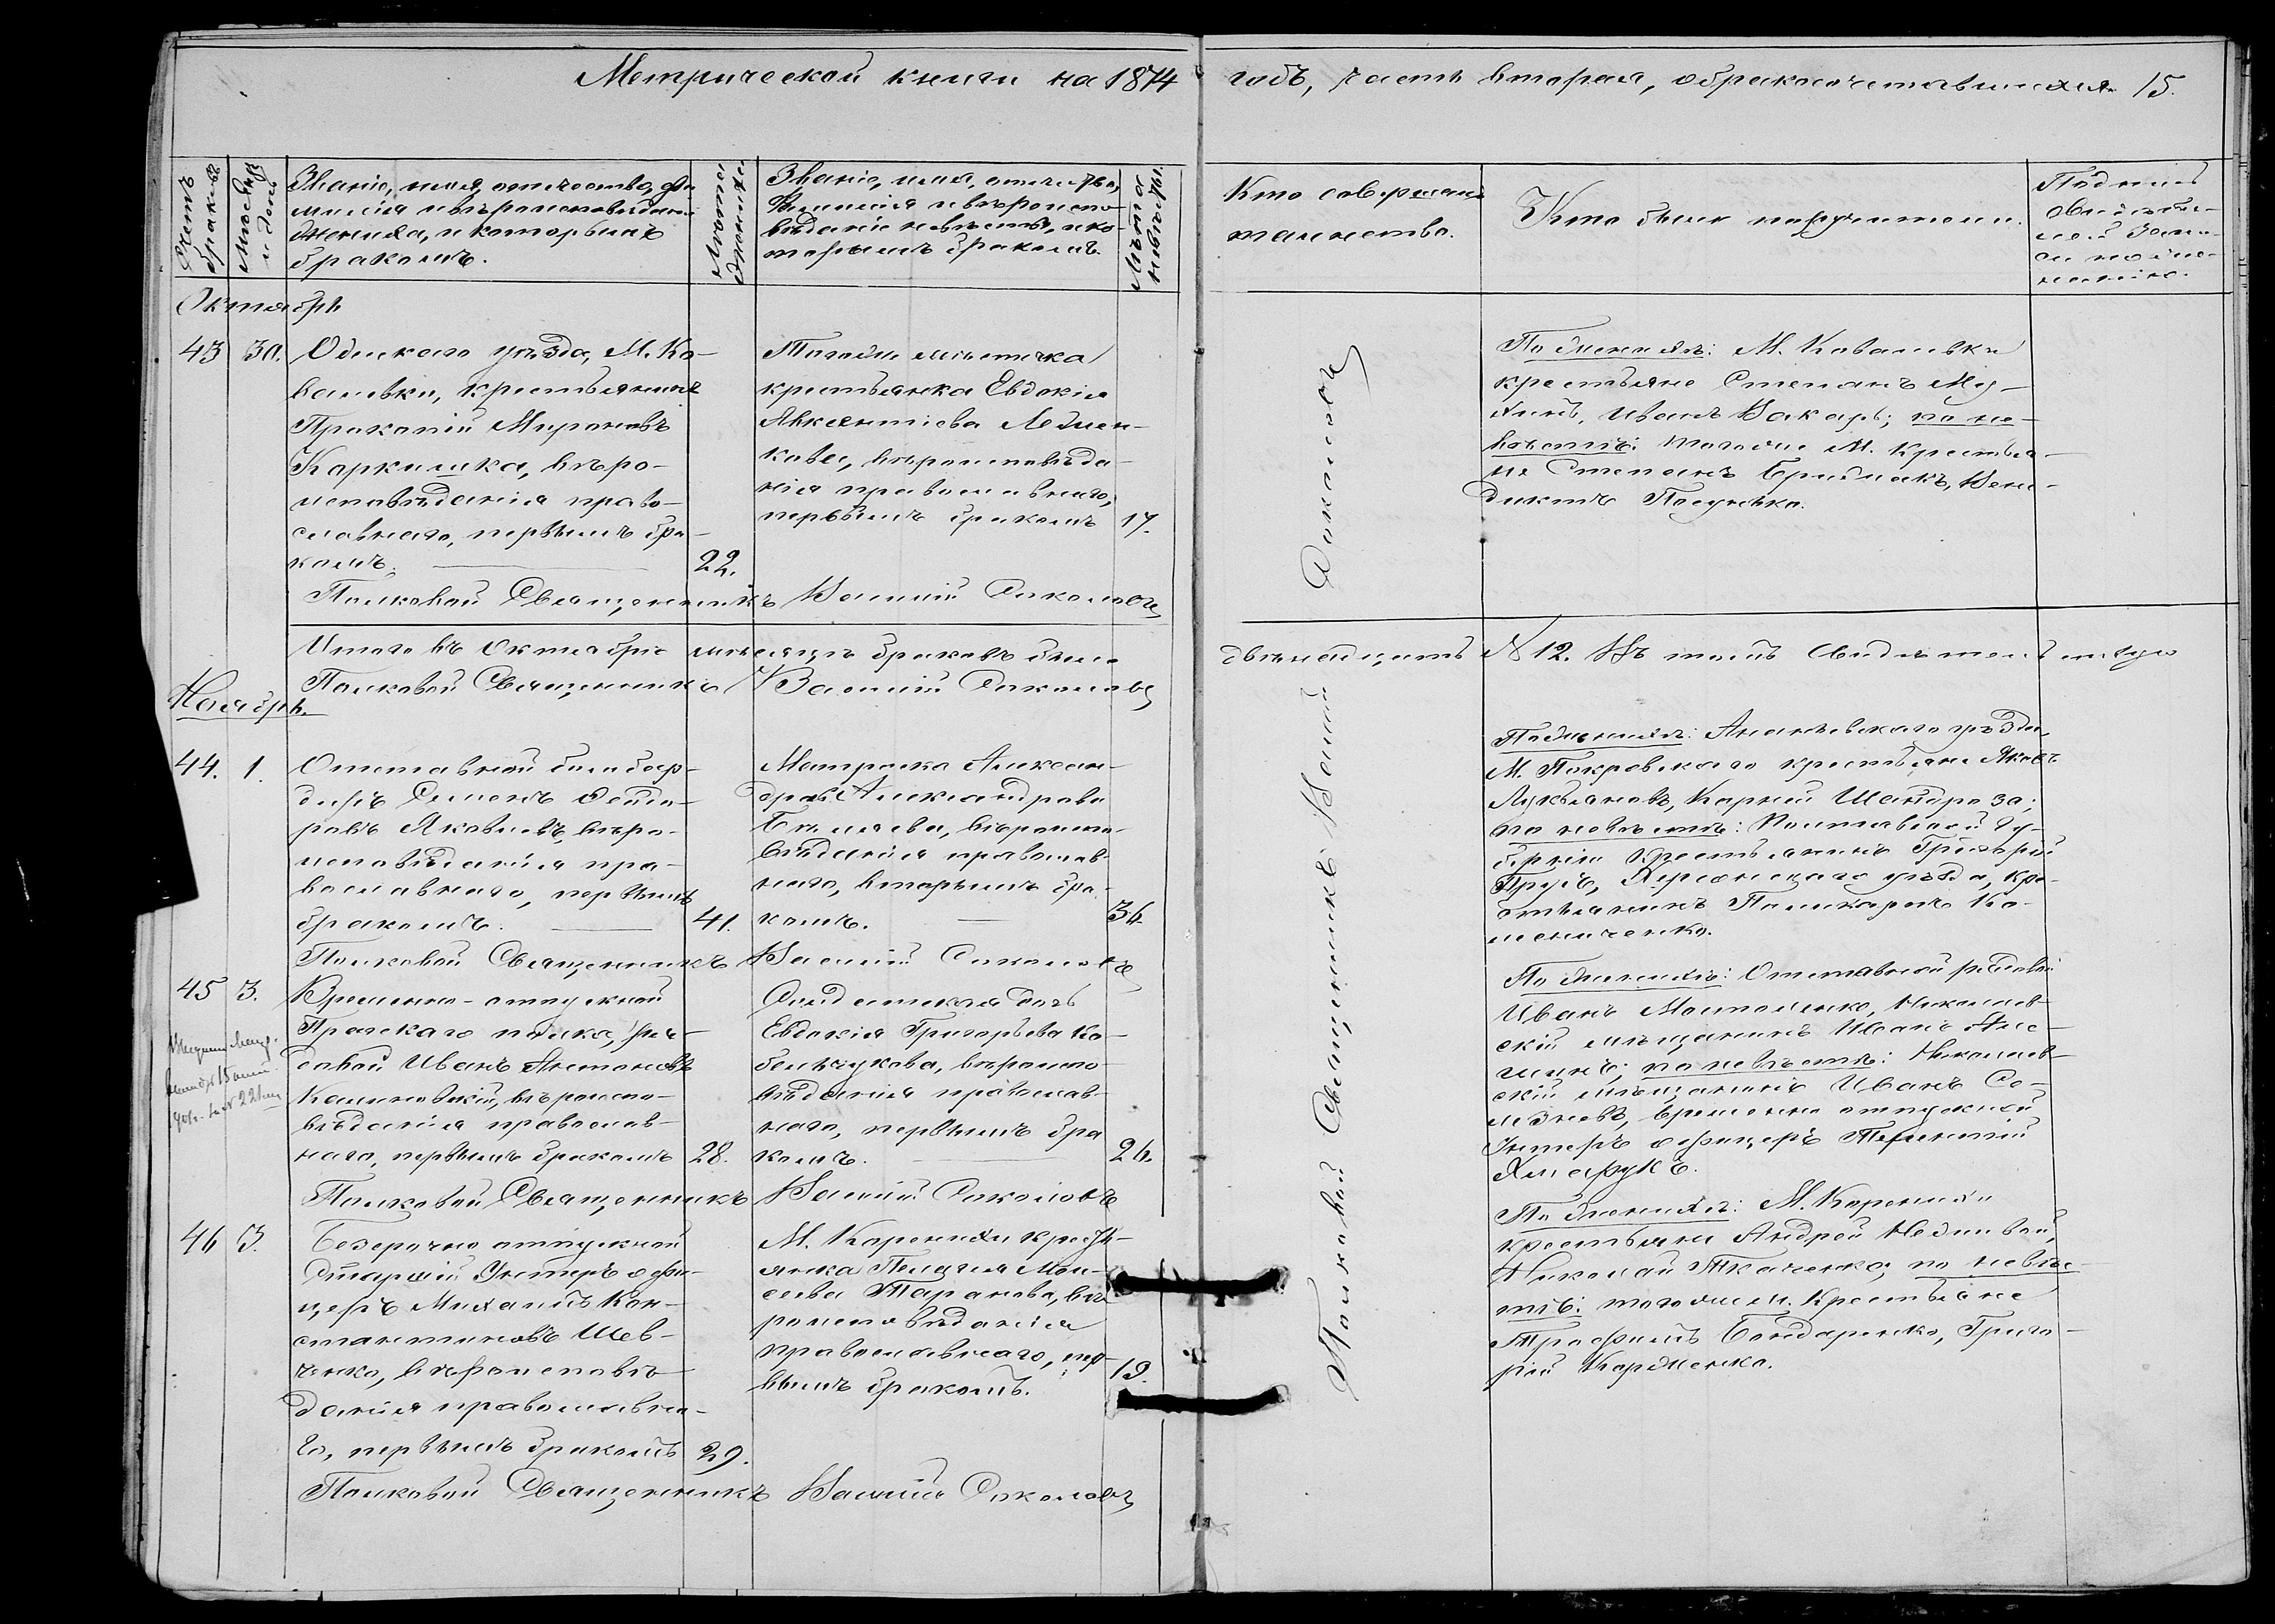 Метрической книги на 1874 годъ, часть вторая, о бракосочетавшихся. 15.
Счетъ браковъ
Мѣсяцъ и день
Званіе, имя, отчество, фа-
милія и вѣроисповѣданіе
жениха, и которымъ
бракомъ.
Лѣта жениха
Званіе, имя, отчество,
фамилія и вѣроиспо-
вѣданіе невѣсты, и ко-
торымъ бракомъ.
Лѣта невѣсты
Кто совершалъ
таинство.
Кто были поручители.
Подпись
свидѣте-
лей запи-
си по же-
ланію.
Октябрь
43
30.
Одесскаго уѣзда, М. Ко-
валевки, крестьянинъ
Прокопій Мироновъ
Каркишка, вѣро-
исповѣданія право-
славнаго, первымъ бра-
комъ.
22.
Тогоже мѣстечка
крестьянка Евдокія
Авксентіева
кова, вѣроисповѣда-
нія православнаго,
первымъ бракомъ
17.
По женихѣ: М. Ковалевки
крестьяне Степанъ Му-
Иванъ Вакарь; по не-
вѣстѣ: тогоже М. крестья-
не Степанъ Вени-
диктъ
Полковой Священникъ Василій Соколовъ
Итого въ Октябрѣ мѣсяцѣ браковъ было двѣнадцать № 12. Въ томъ свидѣтельствую
Полковой Священникъ Василій Соколовъ
Ноябрь.
44.
1.
Отставной бомбар-
диръ Семенъ Федо-
ровъ Яковлевъ, вѣро-
исповѣданія пра-
вославнаго, первымъ
бракомъ.
41.
Матрона Алексан-
дрова Александрова
Бѣляева, вѣроиспо-
вѣданія православ-
наго, вторымъ бра-
комъ.
36.
По женихѣ: Ананьевскаго уѣзда,
М. Покровскаго крестьяне Яковъ
Лукьяновъ, Карней Шандро за;
по невѣстѣ: Полтавской гу-
берніи крестьянинъ Григорій
Прусъ, Херсонскаго уѣзда, кре-
стьянинъ Поликарпъ Ко-
Полковой Священникъ Василій Соколовъ
45
3.
Временно-отпускной
Пражскаго полка, ря-
довой Иванъ Антоновъ
Калиновскій, вѣроиспо-
вѣданія православ-
наго, первымъ бракомъ
28.
Солдатская дочь
Евдокія Григорьева Ко-
бельчукова, вѣроиспо-
вѣданія православ-
наго, первымъ бра
комъ.
26.
По женихѣ: Отставной рядовой
Иванъ Николаев-
скій мѣщанинъ Иванъ
по невѣстѣ: Николаев-
скій мѣщанинъ Иванъ Со-
временно отпускной
Унтеръ офицеръ Терентій
Полковой Священникъ Василій Соколовъ
46
3.
Безсрочно отпускной
старшій Унтеръ офи-
церъ Михаилъ Кон-
стантиновъ Шев-
ченко, вѣроисповѣ-
данія православна-
го, первымъ бракомъ
29.
М. Коренихи кресть-
янка Пелагія Мои-
сеева Таранова, вѣ-
роисповѣданія
православнаго, пер-
вымъ бракомъ.
19.
По женихѣ: М. Коренихи
крестьяне Андрей
Николай Ткаченко; по невѣс-
тѣ: тогоже м. крестьяне
Трофимъ Бондаренко, Григо-
рій
Полковой Священникъ Василій Соколовъ
Полковой Священникъ Василій Соколовъ